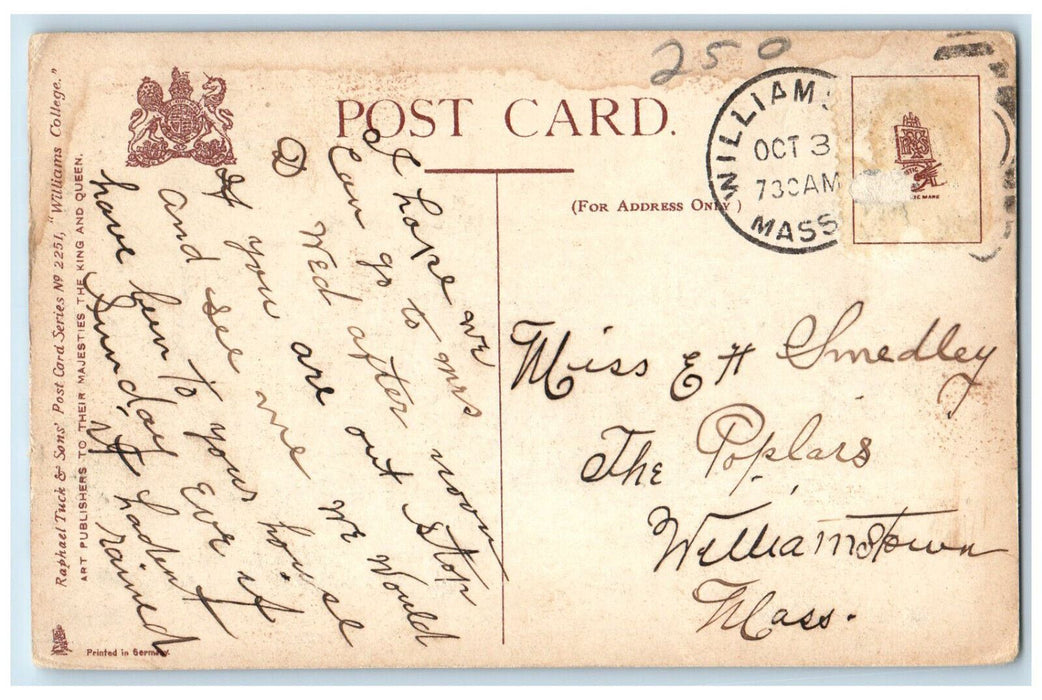 250
POST CARD.
(FOR ADDRESS ONLY)
WILLIAMS
OCT 3
730AM
MASS
Raphael Tuck & Sons' Post Card Series Nº 2251, "Williams College."
ART PUBLISHERS TO THEIR MAJESTIES THE KING AND QUEEN.
Printed in Germany.
I hope we
Can go to mrs
D Wed after noon
If you are out stop
and see me we would
have ben to your house
Sunday Eve if
it hadent
rained
Miss E H Smedley
The Poplars
Williamstown
Mass.